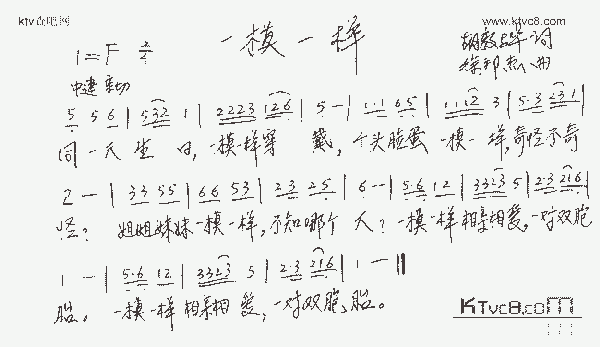 ktv吉吧网
www.ktvc8.com
一模一样
1=F 2/4
中速
5 5 6 | 532 1 | 2223 126 | 5 - | 1·1 65 | 1112 3 | 5·3 231 |
同一天生日,一模一样穿戴,个头脸蛋一模一样,奇怪不奇
2 - | 33 55 | 66 53 | 23 25 | 6 - | 5·6 12 | 3323 5 | 2·3 216 |
怪?姐姐妹妹一模一样,不知哪个人?一模一样相亲相爱,一对双胞
1 - | 5·6 12 | 3323 5 | 2·3 216 | 1 - ‖
胎。一模一样相亲相爱,一对双胞胎。
KTvc8.com